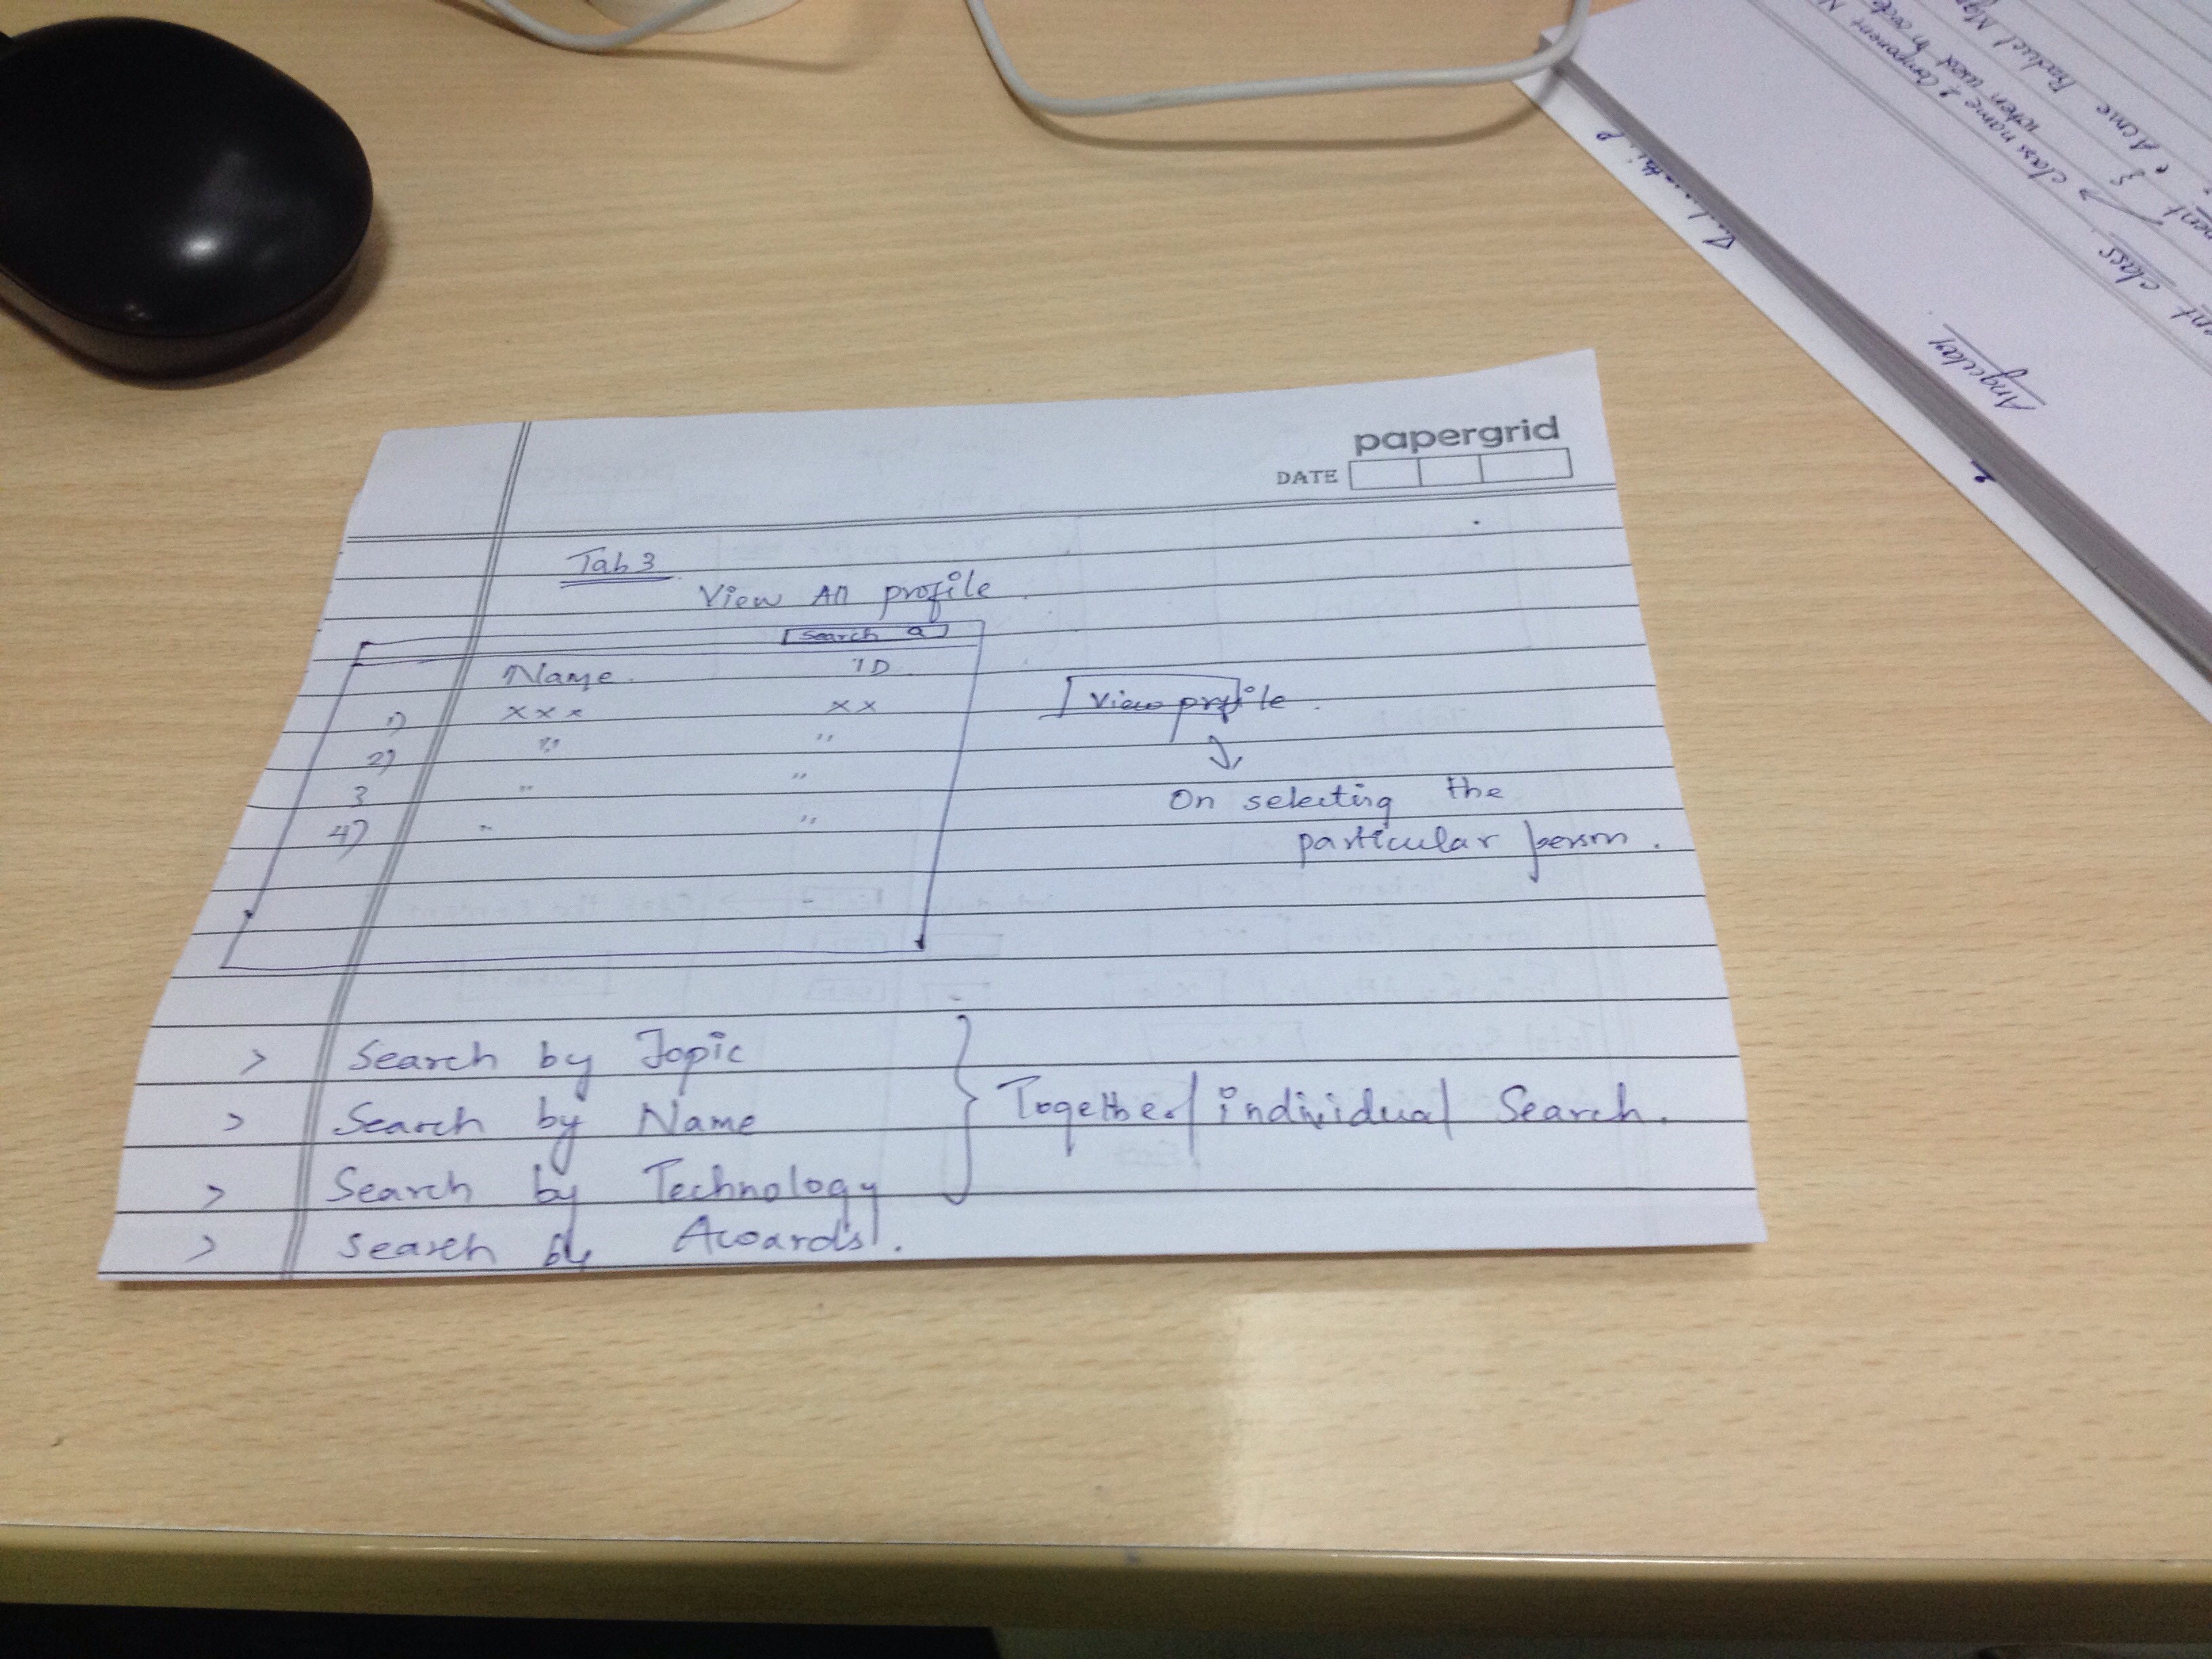 papergrid
DATE
Tab 3
View All profile
Search Q
Name ID
1) xxx xx
2) " "
3 " "
4) " "
View profile
On selecting the
particular person.
> Search by Topic
> Search by Name
> Search by Technology
> Search by Awards.
Together/individual Search.
Angular
class
class name & Component
when used
Acme